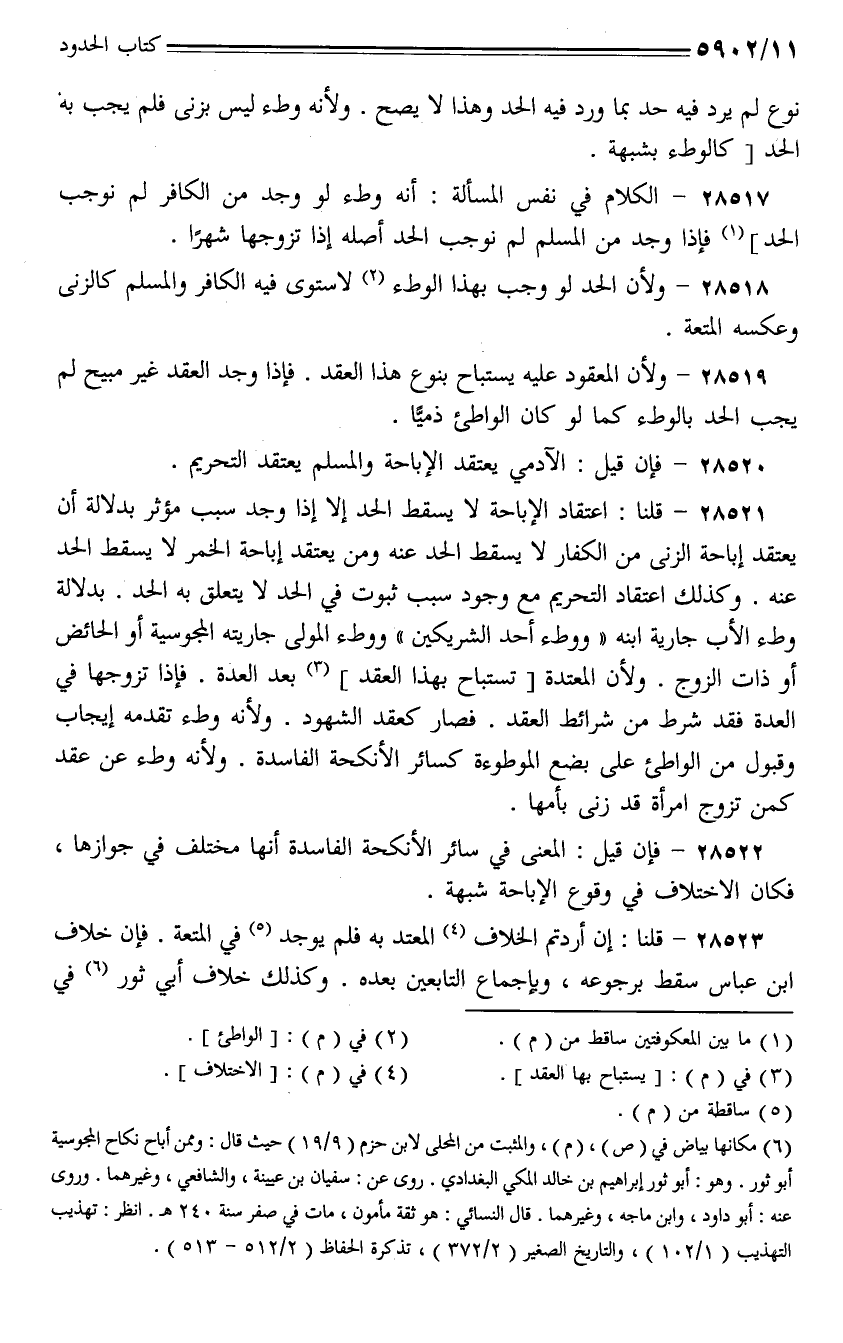 ٥٩٠٢/١١ كتاب الحدود
نوع لم يرد فيه حد بما ورد فيه الحد وهذا لا يصح . ولأنه وطء ليس بزنى فلم يجب به
الحد [ كالوطء بشبهة .
٢٨٥١٧ - الكلام في نفس المسألة : أنه وطء لو وجد من الكافر لم نوجب
الحد ] (١) فإذا وجد من المسلم لم نوجب الحد أصله إذا تزوجها شهرًا .
٢٨٥١٨ - ولأن الحد لو وجب بهذا الوطء (٢) لاستوى فيه الكافر والمسلم كالزنى
وعكسه المتعة .
٢٨٥١٩ - ولأن المعقود عليه يستباح بنوع هذا العقد . فإذا وجد العقد غير مبيح لم
يجب الحد بالوطء كما لو كان الواطئ ذميًّا .
٢٨٥٢٠ - فإن قيل : الآدمي يعتقد الإباحة والمسلم يعتقد التحريم .
٢٨٥٢١ - قلنا : اعتقاد الإباحة لا يسقط الحد إلا إذا وجد سبب مؤثر بدلالة أن
يعتقد إباحة الزنى من الكفار لا يسقط الحد عنه ومن يعتقد إباحة الخمر لا يسقط الحد
عنه . وكذلك اعتقاد التحريم مع وجود سبب ثبوت في الحد لا يتعلق به الحد . بدلالة
وطء الأب جارية ابنه « ووطء أحد الشريكين » ووطء المولى جاريته المجوسية أو الحائض
أو ذات الزوج . ولأن المعتدة [ تستباح بهذا العقد ] (٣) بعد العدة . فإذا تزوجها في
العدة فقد شرط من شرائط العقد . فصار كعقد الشهود . ولأنه وطء تقدمه إيجاب
وقبول من الواطئ على بضع الموطوءة كسائر الأنكحة الفاسدة . ولأنه وطء عن عقد
كمن تزوج امرأة قد زنى بأمها .
٢٨٥٢٢ - فإن قيل : المعنى في سائر الأنكحة الفاسدة أنها مختلف في جوازها ،
فكان الاختلاف في وقوع الإباحة شبهة .
٢٨٥٢٣ - قلنا : إن أردتم الخلاف (٤) المعتد به فلم يوجد (٥) في المتعة . فإن خلاف
ابن عباس سقط برجوعه ، وبإجماع التابعين بعده . وكذلك خلاف أبي ثور (٦) في
(١) ما بين المعكوفتين ساقط من ( م ) . (٢) في ( م ) : [ الواطئ ] .
(٣) في ( م ) : [ يستباح بها العقد ] . (٤) في ( م ) : [ الاختلاف ] .
(٥) ساقطة من ( م ) .
(٦) مكانها بياض في ( ص ) ، ( م ) ، والمثبت من المحلى لابن حزم ( ١٩/٩ ) حيث قال : وممن أباح نكاح المجوسية
أبو ثور . وهو : أبو ثور إبراهيم بن خالد المكي البغدادي . روى عن : سفيان بن عيينة ، والشافعي ، وغيرهما . وروى
عنه : أبو داود ، وابن ماجه ، وغيرهما . قال النسائي : هو ثقة مأمون ، مات في صفر سنة ٢٤٠ هـ . انظر : تهذيب
التهذيب ( ١٠٢/١ ) ، والتاريخ الصغير ( ٣٧٢/٢ ) ، تذكرة الحفاظ ( ٥١٢/٢ - ٥١٣ ) .